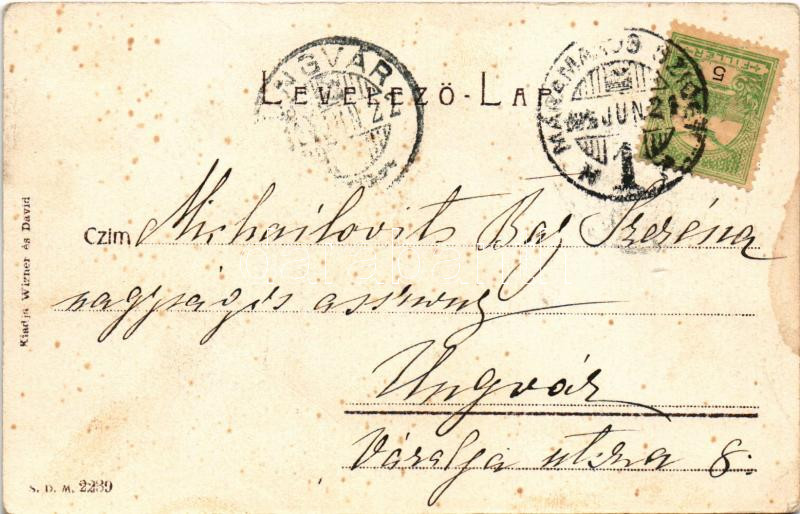 LEVELEZŐ-LAP
UNGVÁR
JUN 22
MÁRAMAROS SZIGET
JUN 21
1
FILLÉR
5
Czim Michailovits Baj Szeréna
nagyságos asszony
Ungvár
Váralja utcza 8.
Kiadja Wizner és David
S. D. M. 2239